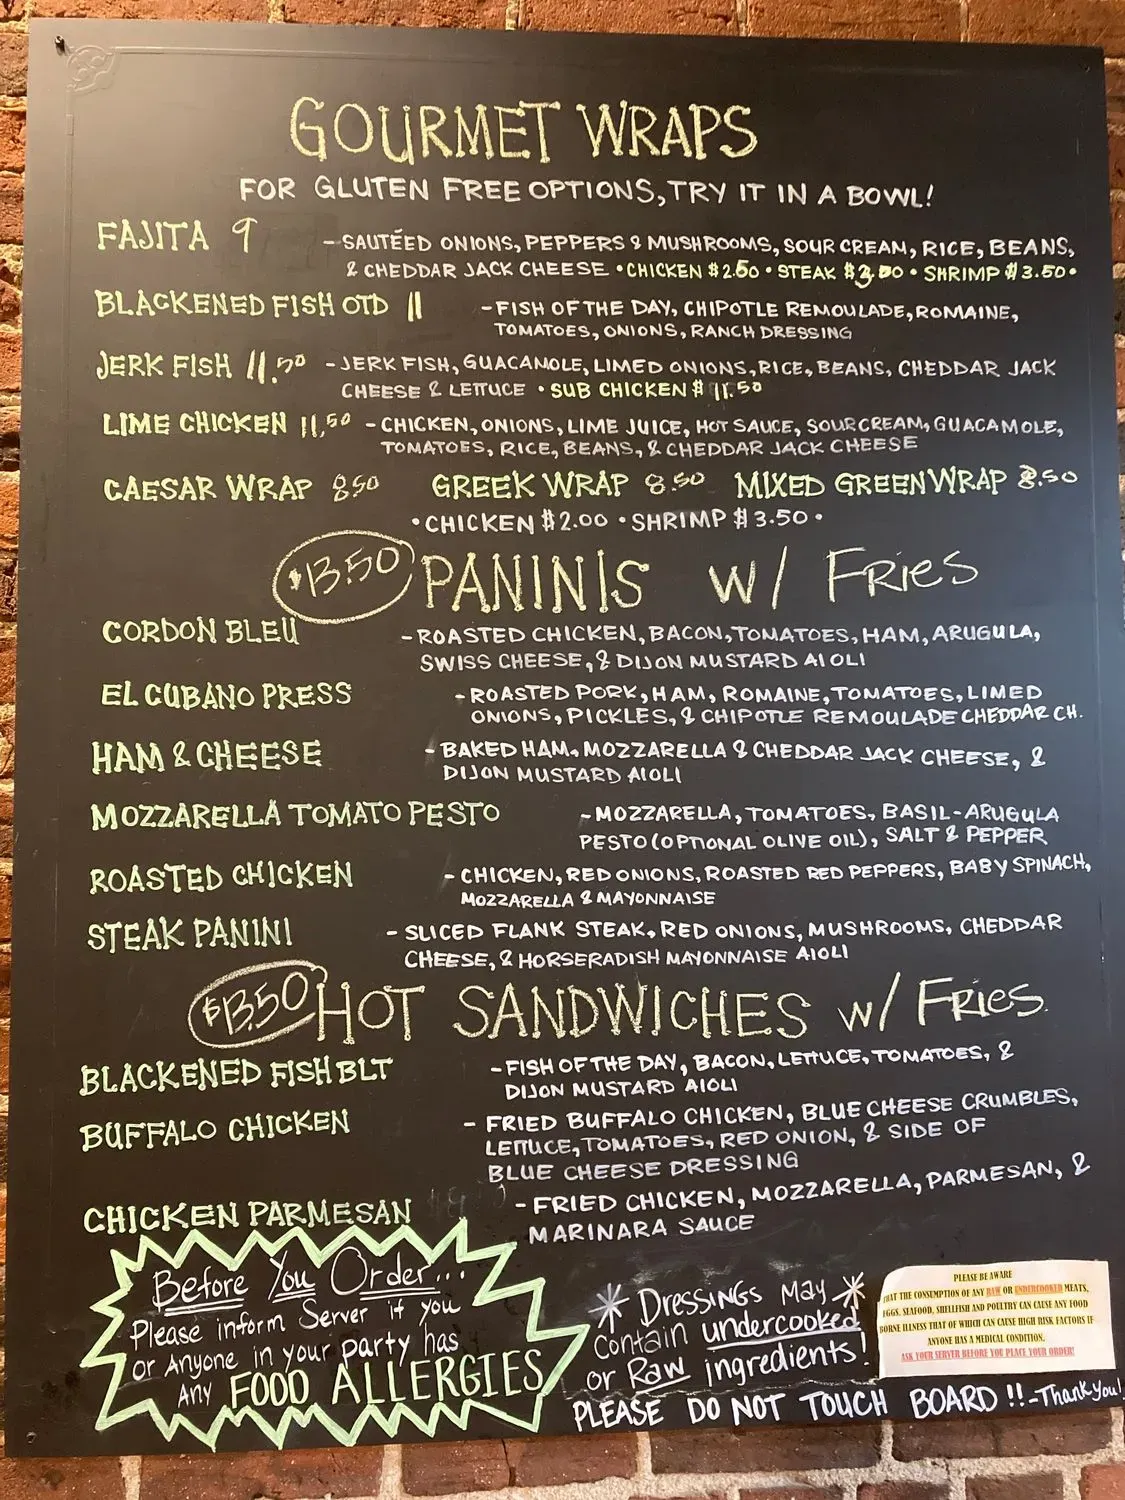 GOURMET WRAPS
FOR GLUTEN FREE OPTIONS, TRY IT IN A BOWL!
FAJITA 9 - SAUTÉED ONIONS, PEPPERS & MUSHROOMS, SOUR CREAM, RICE, BEANS,
& CHEDDAR JACK CHEESE • CHICKEN $2.50 • STEAK $3.00 • SHRIMP $3.50 •
BLACKENED FISH OTD 11 - FISH OF THE DAY, CHIPOTLE REMOULADE, ROMAINE,
TOMATOES, ONIONS, RANCH DRESSING
JERK FISH 11.50 - JERK FISH, GUACAMOLE, LIMED ONIONS, RICE, BEANS, CHEDDAR JACK
CHEESE & LETTUCE • SUB CHICKEN $ 11.50
LIME CHICKEN 11.50 - CHICKEN, ONIONS, LIME JUICE, HOT SAUCE, SOUR CREAM, GUACAMOLE,
TOMATOES, RICE, BEANS, & CHEDDAR JACK CHEESE
CAESAR WRAP 8.50 GREEK WRAP 8.50 MIXED GREEN WRAP 8.50
• CHICKEN $2.00 • SHRIMP $3.50 •
$13.50 PANINIS W/ Fries
CORDON BLEU - ROASTED CHICKEN, BACON, TOMATOES, HAM, ARUGULA,
SWISS CHEESE, & DIJON MUSTARD AIOLI
EL CUBANO PRESS - ROASTED PORK, HAM, ROMAINE, TOMATOES, LIMED
ONIONS, PICKLES, & CHIPOTLE REMOULADE CHEDDAR CH.
HAM & CHEESE - BAKED HAM, MOZZARELLA & CHEDDAR JACK CHEESE, &
DIJON MUSTARD AIOLI
MOZZARELLA TOMATO PESTO - MOZZARELLA, TOMATOES, BASIL-ARUGULA
PESTO (OPTIONAL OLIVE OIL), SALT & PEPPER
ROASTED CHICKEN - CHICKEN, RED ONIONS, ROASTED RED PEPPERS, BABY SPINACH,
MOZZARELLA & MAYONNAISE
STEAK PANINI - SLICED FLANK STEAK, RED ONIONS, MUSHROOMS, CHEDDAR
CHEESE, & HORSERADISH MAYONNAISE AIOLI
$13.50 HOT SANDWICHES W/ Fries.
BLACKENED FISH BLT - FISH OF THE DAY, BACON, LETTUCE, TOMATOES, &
DIJON MUSTARD AIOLI
BUFFALO CHICKEN - FRIED BUFFALO CHICKEN, BLUE CHEESE CRUMBLES,
LETTUCE, TOMATOES, RED ONION, & SIDE OF
BLUE CHEESE DRESSING
CHICKEN PARMESAN - FRIED CHICKEN, MOZZARELLA, PARMESAN, &
MARINARA SAUCE
Before You Order...
Please inform Server if you
or Anyone in your party has
Any FOOD ALLERGIES
* DRESSINGS MAY *
Contain undercooked
or Raw ingredients!
PLEASE BE AWARE
THAT THE CONSUMPTION OF ANY RAW OR UNDERCOOKED MEATS,
EGGS, SEAFOOD, SHELLFISH AND POULTRY CAN CAUSE ANY FOOD
BORNE ILLNESS THAT OF WHICH CAN CAUSE HIGH RISK FACTORS IF
ANYONE HAS A MEDICAL CONDITION.
ASK YOUR SERVER BEFORE YOU PLACE YOUR ORDER!
PLEASE DO NOT TOUCH BOARD!! - Thank You!